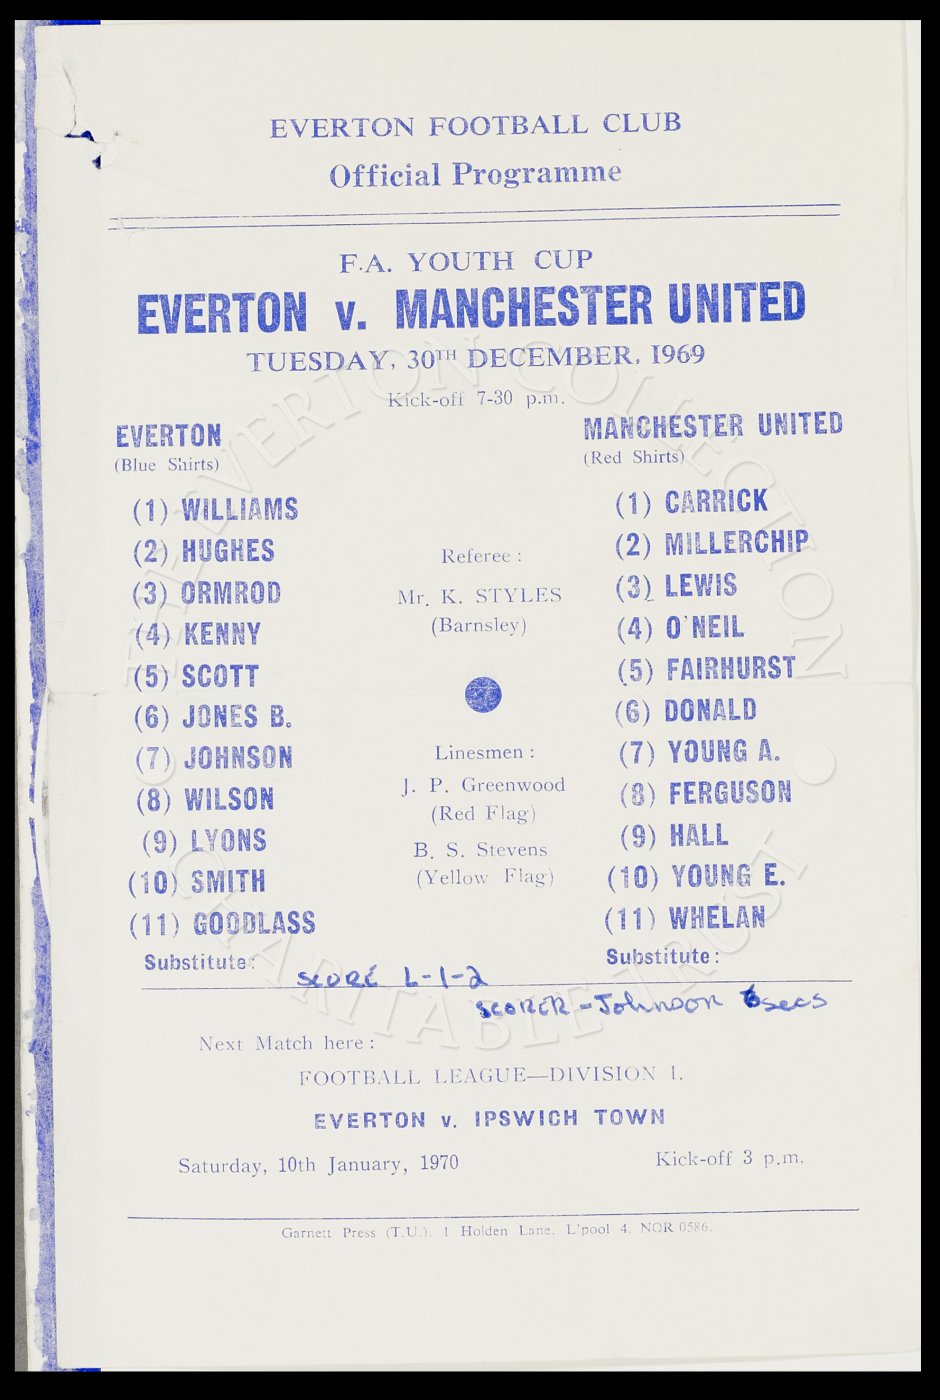 EVERTON FOOTBALL CLUB
Official Programme
F.A. YOUTH CUP
EVERTON v. MANCHESTER UNITED
TUESDAY, 30TH DECEMBER, 1969
Kick-off 7-30 p.m.
EVERTON
(Blue Shirts)
(1) WILLIAMS
(2) HUGHES
(3) ORMROD
(4) KENNY
(5) SCOTT
(6) JONES B.
(7) JOHNSON
(8) WILSON
(9) LYONS
(10) SMITH
(11) GOODLASS
Substitute:
Referee :
Mr. K. STYLES
(Barnsley)
Linesmen :
J. P. Greenwood
(Red Flag)
B. S. Stevens
(Yellow Flag)
MANCHESTER UNITED
(Red Shirts)
(1) CARRICK
(2) MILLERCHIP
(3) LEWIS
(4) O'NEIL
(5) FAIRHURST
(6) DONALD
(7) YOUNG A.
(8) FERGUSON
(9) HALL
(10) YOUNG E.
(11) WHELAN
Substitute:
SCORE L-1-2
SCORER - Johnson 6secs
Next Match here :
FOOTBALL LEAGUE—DIVISION I.
EVERTON v. IPSWICH TOWN
Saturday, 10th January, 1970
Kick-off 3 p.m.
Garnett Press (T.U.), 1 Holden Lane, L'pool 4. NOR 0586.
THE EVERTON COLLECTION
CHARITABLE TRUST